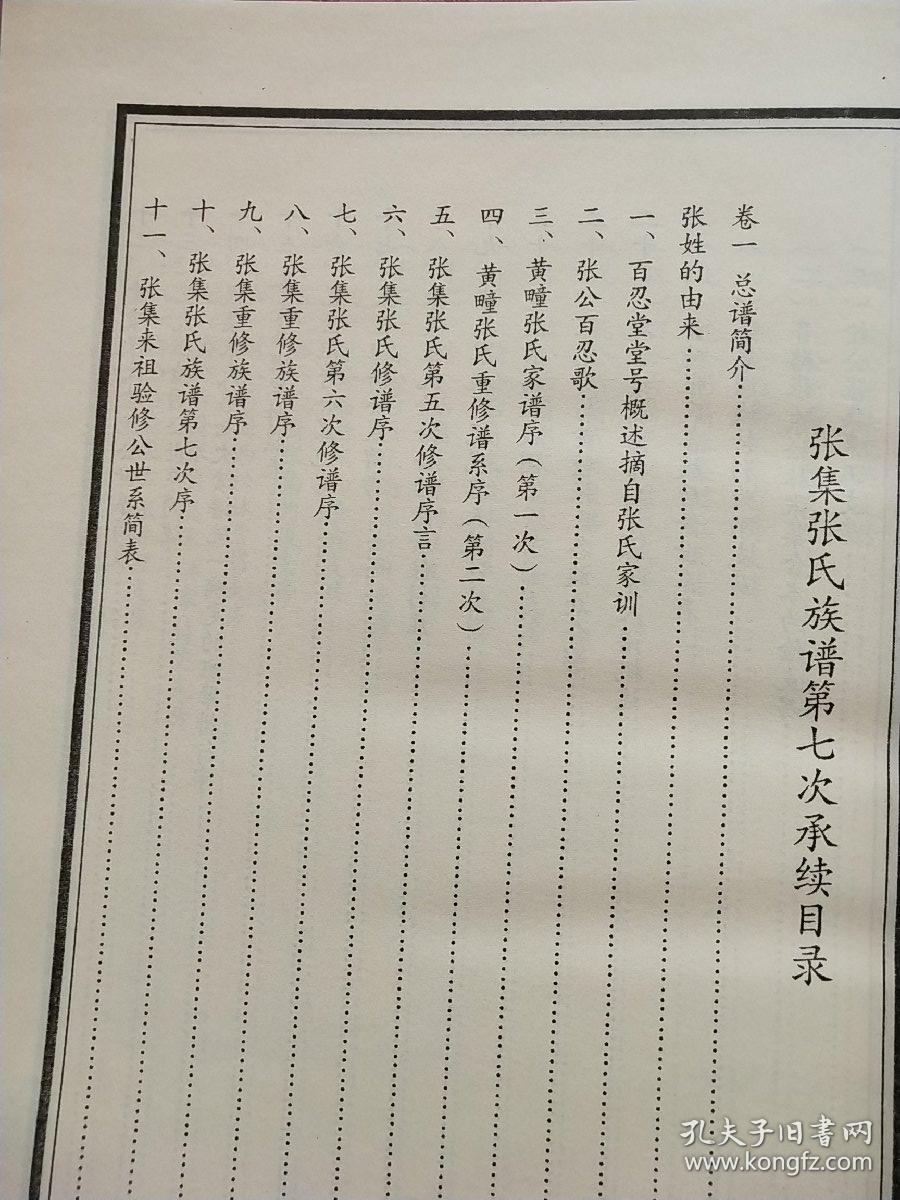 张集张氏族谱第七次承续目录
卷一 总谱简介
张姓的由来
一、百忍堂堂号概述摘自张氏家训
二、张公百忍歌
三、黄疃张氏家谱序(第一次)
四、黄疃张氏重修谱系序(第二次)
五、张集张氏第五次修谱序言
六、张集张氏修谱序
七、张集张氏第六次修谱序
八、张集重修族谱序
九、张集重修族谱序
十、张集张氏族谱第七次序
十一、张集来祖验修公世系简表
孔夫子旧书网
www.kongfz.com